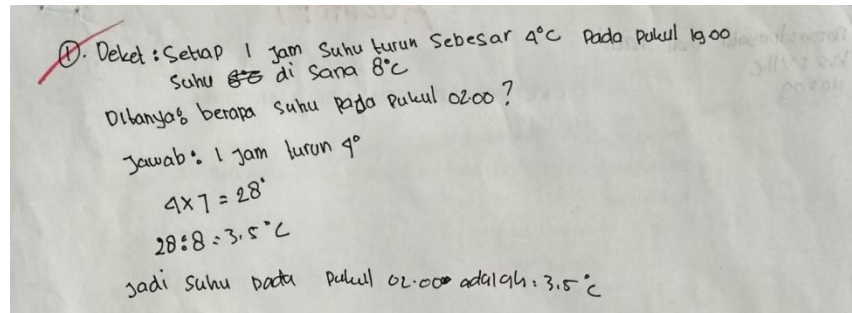 ①. Deket : Setiap 1 Jam Suhu turun Sebesar 4°C Pada Pukul 19 00
Suhu di Sana 8°C
Ditanya : berapa suhu pada Pukul 02.00 ?
Jawab : 1 Jam turun 4°
4x7 = 28°
28:8 = 3,5°C
Jadi Suhu Pada Pukul 02.00 adalah : 3.5°C